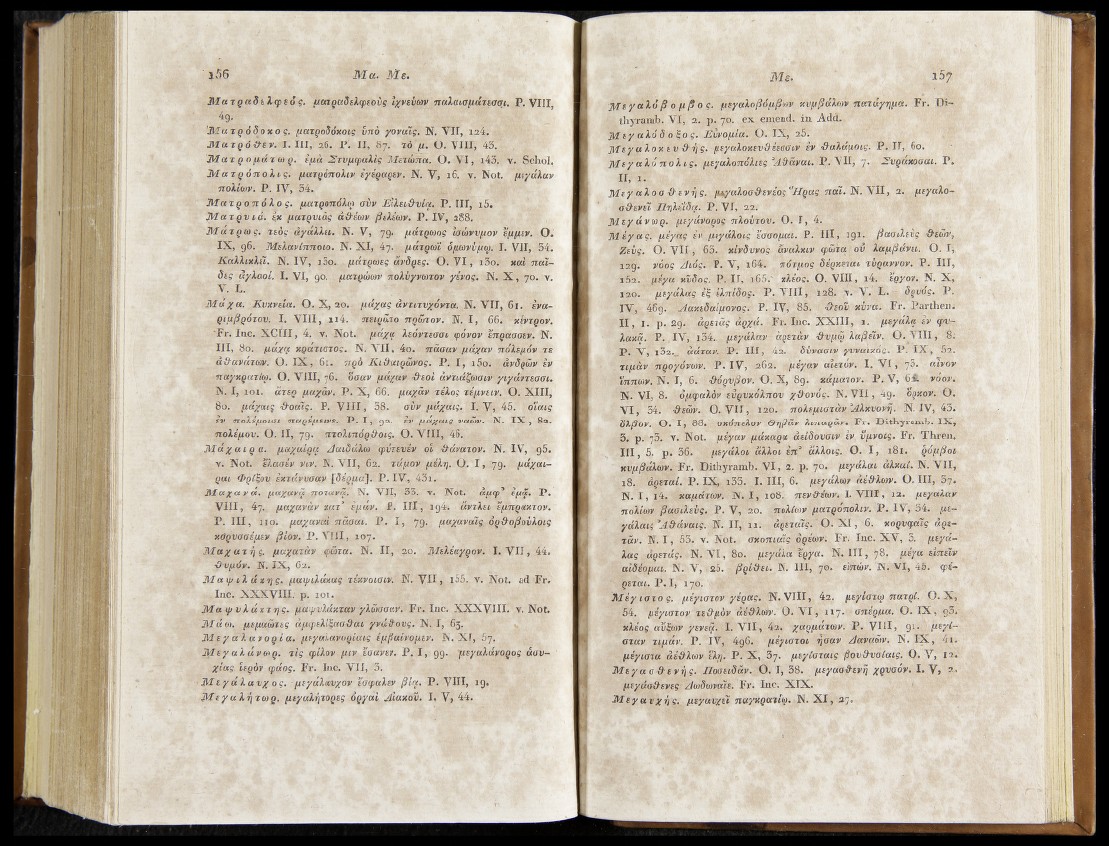 156 Ma. Me.
Ματραδελφεός. ματραδελφεοὺς ἰχνεύων παλαισμάτεσσι. P. VIII,
49.
Ματρόδοκος. ματροδόκοις ὑπὸ γοναῖς. N. VII, 124.
Ματρόθεν. I. III, 26. P. II, 87. τὸ μ. O. VIII, 43.
Ματρομάτωρ. ἐμὰ Στυμφαλὶς Μετώπα. O. VI, 143. v. Schol.
Ματρόπολις. ματρόπολιν ἐγέραρεν. N. V, 16. v. Not. μεγάλαν
πολίων. P. IV, 34.
Ματροπόλος. ματροπόλῳ σὺν Ἐλειθυίᾳ. P. III, 15.
Ματρυιά. ἐκ ματρυιᾶς ἀθέων βελέων. P. IV, 288.
Μάτρως. τεὸς ἀγάλλει. N. V, 79. μάτρωος ἰσώνυμον ἔμμιν. O.
IX, 96. Μελανίπποιο. N. XI, 47. μάτρωΐ ὁμωνύμῳ. I. VII, 34.
Καλλικλῆ. N. IV, 130. μάτρωες ἄνδρες. O. VI, 130. καὶ παῖ-
δες ἀγλαοί. I. VI, 90. ματρώων πολύγνωτον γένος. N. X, 70. v.
V. L.
Μάχα. Κυκνεία. O. X, 20. μάχας ἀντιτυχόντα. N. VII, 61. ἐνα-
ριμβρότου. I. VIII, 114. πειρῶτο πρῶτον. N. I, 66. κίντρον.
Fr. Inc. XCIII, 4. v. Not. μάχᾳ λεόντεσσι φόνον ἔπρασσεν. N.
III, 80. μάχᾳ κράτιστος. N. VII, 40. πᾶσαν μάχαν πόλεμόν τε
ἀθανάτων. O. IX, 61. πρὸ Κιθαιρῶνος. P. I, 150. ἀνδρῶν ἐν
παγκρατίῳ. O. VIII, 76. ὅσαν μάχαν θεοὶ ἀντιάζωσιν γιγάντεσσι.
N. I, 101. ἄτερ μαχᾶν. P. X, 66. μαχᾶν τέλος τέμνειν. O. XIII,
80. μάχαις θοαῖς. P. VIII, 38. σὺν μάχαις. I. V, 45. οἵαις
ἐν πολέμοισι παρέμεινε. P. I, 92. ἐν μάχαις ναῶν. N. IX, 82.
πολέμου. O. II, 79. πτολιπόρθοις. O. VIII, 46.
Μάχαιρα. μαχαίρᾳ Δαιδάλῳ φύτευέν οἱ θάνατον. N. IV, 95.
v. Not. ἔλασέν νιν. N. VII, 62. τάμον μέλη. O. I, 79. μάχαι-
ραι Φρίξου ἐκτάνυσαν [δέρμα]. P. IV, 431.
Μαχανά. μαχανᾷ ποτανᾷ. N. VII, 33. v. Not. ἀμφ' ἐμᾷ. P.
VIII, 47. μαχανὰν κατ' ἐμάν. P. III, 194. ἄντλει ἔμπρακτον.
P. III, 110. μαχαναὶ πᾶσαι. P. I, 79. μαχαναῖς ὀρθοβούλοις
κορυσσέμεν βίον. P. VIII, 107.
Μαχατής. μαχατὰν φῶτα. N. II, 20. Μελέαγρον. I. VII, 44.
θυμόν. N. IX, 62.
Μαψιλάκης. μαψιλάκας τέκνοισιν. N. VII, 155. v. Not. ed Fr.
Inc. XXXVIII. p. 101.
Μαψυλάκτης. μαψυλάκταν γλῶσσαν. Fr. Inc. XXXVIII. v. Not.
Μάω. μεμαῶτες ἀμφελίξασθαι γνάθους. N. I, 63.
Μεγαλανορία. μεγαλανορίαις ἐμβαίνομεν. N. XI, 57.
Μεγαλάνωρ. τὶς φίλων μιν ἔσανεν. P. I, 99. μεγαλάνορος ἁσυ-
χίας ἱερὸν φάος. Fr. Inc. VII, 3.
Μεγάλαυχος. μεγάλαυχον ἔσφαλεν βίᾳ. P. VIII, 19.
Μεγαλήτωρ. μεγαλήτορες ὀργαὶ Αἰακοῦ. I. V, 44.
Me. 157
Μεγαλόβομβος. μεγαλοβόμβων κυμβάλων πατάγημα. Fr. Di-
thyramb. VI, 2. p. 70. ex emend. in Add.
Μεγαλόδοξος. Εὐνομία. O. IX, 25.
Μεγαλοκευθής. μεγαλοκευθέεσσιν ἐν θαλάμοις. P. II, 60.
Μεγαλόπολις. μεγαλοπόλιες Ἀθᾶναι. P. VII, 7. Συράκοσαι. P.
II, 1.
Μεγαλοσθενής. μεγαλοσθενέος Ἥρας παῖ. N. VII, 2. μεγαλο-
σθενεῖ Πηλεΐδᾳ. P. VI, 22.
Μεγάνωρ. μεγάνορος πλούτου. O. I, 4.
Μέγας. μέγας ἐν μεγάλοις ἔσσομαι. P. III, 191. βασιλεὺς θεῶν,
Ζεύς. O. VII, 63. κίνδυνος ἄναλκιν φῶτα οὐ λαμβάνει. O. I,
129. νόος Διός. P. V, 164. πότμος δέρκεται τύραννον. P. III,
152. μέγα κῦδος. P. II, 165. κλέος. O. VIII, 14. ἔργον. N. X,
120. μεγάλας ἐξ ἐλπίδος. P. VIII, 128. v. V. L. δρυός. P.
IV, 469. Λακεδαίμονος. P. IV, 85. θεοῦ κύνα. Fr. Parthen.
II, 1. p. 29. ἀρετᾶς ἀρχά. Fr. Inc. XXIII, 1. μεγάλᾳ ἐν φυ-
λακᾷ. P. IV, 134. μεγάλαν ἀρετὰν θυμῷ λαβεῖν. O. VIII, 8.
P. V, 132. ἀάταν. P. III, 42. δύνασιν γυναικός. P. IX, 52.
τιμὰν προγόνων. P. IV, 262. μέγαν αἰετόν. I. VI, 73. αἶνον
ἵππων. N. I, 6. θόρυβον. O. X, 89. κάματον. P. V, 62. νόον.
N. VI, 8. ὀμφαλὸν εὐρυκόλπου χθονός. N. VII, 49. ὅρκον. O.
VI, 34. θεῶν. O. VII, 120. πολεμιστὰν Ἀλκυονῆ. N. IV, 43.
ὄλβον. O. I, 88. σκόπελον Θηβᾶν λιπαρᾶν. Fr. Dithyramb. IX,
3. p. 73. v. Not. μέγαν μάκαρα ἀείδουσιν ἐν ὕμνοις. Fr. Thren.
III, 5. p. 36. μεγάλοι ἄλλοι ἐπ' ἄλλοις. O. I, 181. ῥόμβοι
κυμβάλων. Fr. Dithyramb. VI, 2. p. 70. μεγάλαι ἀλκαί. N. VII,
18. ἀρεταί. P. IX, 133. I. III, 6. μεγάλων ἀέθλων. O. III, 37.
N. I, 14. καμάτων. N. I, 108. πενθέων. I. VIII, 12. μεγαλᾶν
πολίων βασιλεύς. P. V, 20. πολίων ματρόπολιν. P. IV, 34. με-
γάλαις Ἀθάναις. N. II, 11. ἀρεταῖς. O. XI, 6. κορυφαῖς ἀρε-
τᾶν. N. I, 53. v. Not. σκοπιαῖς ὀρέων. Fr. Inc. XV, 3. μεγά-
λας ἀρετάς. N. VI, 80. μεγάλα ἔργα. N. III, 78. μέγα εἰπεῖν
αἰδέομαι. N. V, 25. βρίθει. N. III, 70. εἰπών. N. VI, 48. φέ-
ρεται. P. I, 170.
Μέγιστος. μέγιστον γέρας. N. VIII, 42. μεγίστῳ πατρί. O. X,
54. μέγιστον τεθμὸν ἀέθλων. O. VI, 117. σπέρμα. O. IX, 93.
κλέος αὔξων γενεᾷ. I. VII, 42. χαρμάτων. P. VIII, 91. μεγί-
σταν τιμάν. P. IV, 496. μέγιστοι ἦσαν Δαναῶν. N. IX, 41.
μέγιστα ἀέθλων ἕλῃ. P. X, 37. μεγίσταις βουθυσίαις. O. V, 12.
Μεγασθενής. Ποσειδᾶν. O. I, 38. μεγασθενῆ χρυσόν. I. V, 2.
μεγάσθενες Δωδωναῖε. Fr. Inc. XIX.
Μεγαυχής. μεγαυχεῖ παγκρατίῳ. N. XI, 27.